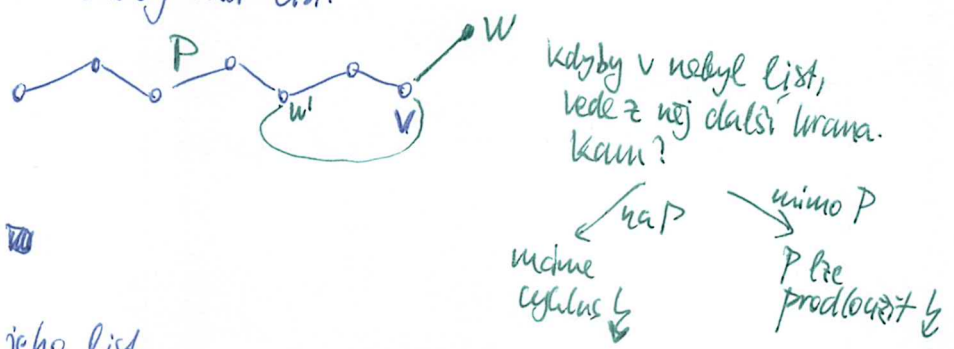 každý list
P
W
w'
v
kdyby v nebyl list,
vede z něj další hrana.
kam?
na P
mimo P
máme
cyklus ↯
P lze
prodloužit ↯
jeho list